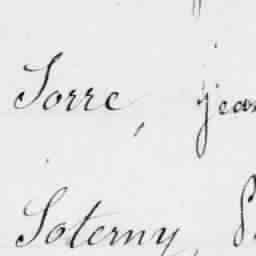 Sorre, jean
Soterny,